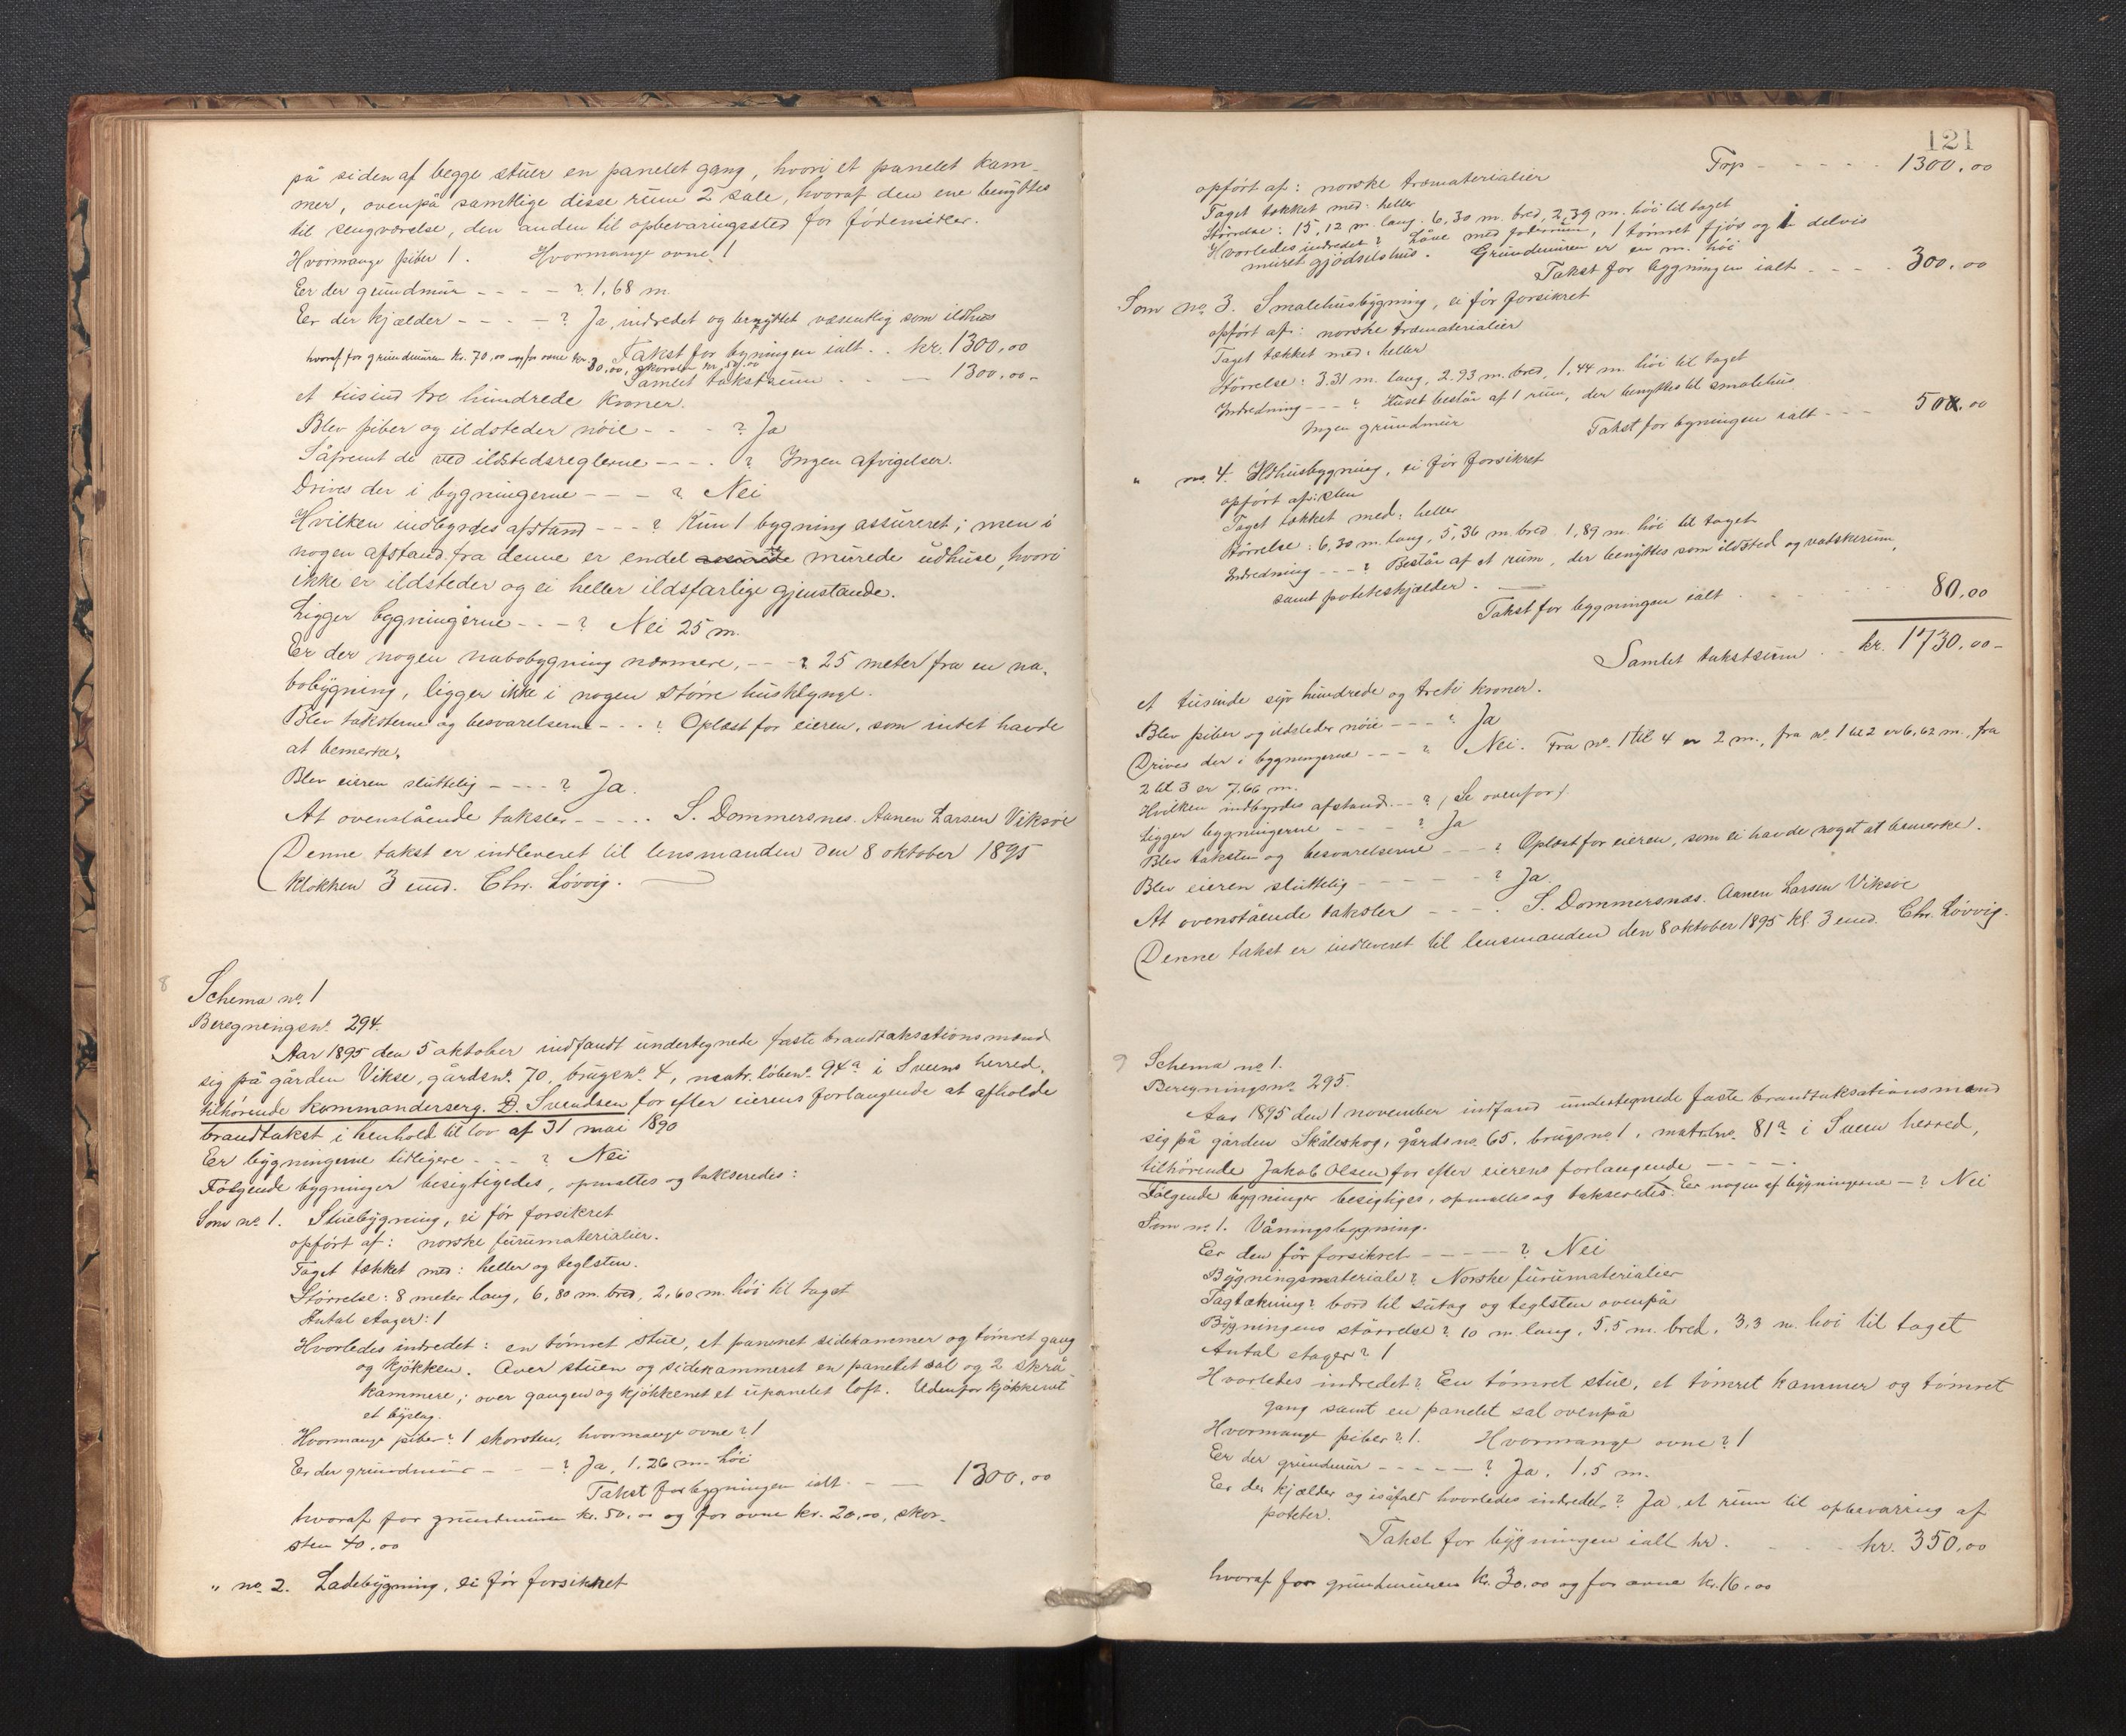 på siden af begge stuer en panelet gang, hvori et panelet kam-
mer, ovenpå samtlige disse rum 2 sale, hvoraf den ene benyttes
til sengværelse, den anden til opbevaringssted for födemidler.
Hvormange piber 1. Hvormange ovne 1
Er der grundmur - - - - ? 1,68 m.
Er der kjælder - - - - ? Ja, indredet og benyttet væsentlig som ildhus
hvoraf for grundmuren kr. 70,00 og for ovne kr. 30,00, skorsten kr. 50,00 Takst for bygningen ialt . . kr. 1300,00
Samlet takstsum . . - 1300,00-
et tusind tre hundrede kroner.
Blev piber og ildsteder nöie - - - ? Ja
Såfremt de ved ildstedsreglerne - - - . ? Ingen afvigelser.
Drives der i bygningerne - - - ? Nei
Hvilken indbyrdes afstand - - - ? Kun 1 bygning assureret; men i
nogen afstand fra denne er endel murede udhuse, hvori
ikke er ildsteder og ei heller ildsfarlige gjenstande.
Ligger bygningerne - - - ? Nei 25 m.
Er der nogen nabobygning nærmere, - - - ? 25 meter fra en na-
bobygning, ligger ikke i nogen större husklynge.
Blev taksterne og besvarelserne - - - ? Oplæst for eieren, som intet havde
at bemerke.
Blev eieren sluttelig - - - - ? Ja.
At ovenstående takster - - - - . S. Dommersnes. Aanen Larsen Viksöe
(Denne takst er indleveret til lensmanden den 8 oktober 1895
klokken 3 emd. Chr. Lövvig.
8
Schema no. 1
Beregningsno. 294.
Aar 1895 den 5 oktober indfandt undertegnede faste brandtaksationsmænd
sig på gården Vikse, gårdsno. 70, brugsno. 4, matr. löbeno. 94a i Sveens herred,
tilhörende Kommanderserg. D. Svendsen for efter eierens forlangende at afholde
brandtakst i henhold til lov af 31 mai 1890
Er bygningerne tidligere - - - ? Nei
Fölgende bygninger besigtigedes, opmaltes og takseredes:
Som no. 1. Stuebygning, ei för forsikret
opfört af: norske furumaterialier.
Taget tækket med: heller og teglsten.
Störrelse: 8 meter lang, 6,80 m. bred, 2,60 m. höi til taget
Antal etager: 1
Hvorledes indredet: en tömret stue, et sidekammer og tömret gang
og kjökken. Over stuen og sidekammeret en panelet sal og 2 skrå
kammere; over gangen og kjökkenet et upanelet loft. Udenfor kjökkenet
et bislag.
Hvormange piber? 1 skorsten, hvormange ovne? 1
Er der grundmur - - - ? Ja, 1,26 m. höi
Takst for bygningen ialt . - - 1300,00
hvoraf for grundmuren kr. 50,00 og for ovne kr. 20,00, skor-
sten 40,00
" no. 2. Ladebygning, ei för forsikret
121
Trp - - - - - 1300,00
opfört af: norske træmaterialier
Taget tækket med: heller
Störrelse: 15,12 m. lang. 6,30 m. bred, 2,39 m. höi til taget
Hvorledes indredet? Låve med foderrum, 1 tömret fjös og 1 delvis
muret gjödselshus. Grundmuren er en m. höi
Takst for bygningen ialt - - - - 300,00
Som no. 3. Smalehusbygning, ei för forsikret
opfört af: norske træmaterialier
Taget tækket med: heller
Störrelse: 3.31 m. lang, 2.93 m. bred, 1,44 m. höi til taget
Indredning - - - ? Huset består af 1 rum, der benyttes til smalehus
Ingen grundmur
Takst for bygningen ialt - - - 50,00
" no. 4. Ildhusbygning, ei för forsikret
opfört af: sten
Taget tækket med: heller
Störrelse: 6,30 m. lang, 5,36 m. bred. 1,89 m. höi til taget
Indredning - - - ? Består af et rum, der benyttes som ildsted og vadskerum,
samt poteteskjælder.
Takst for bygningen ialt . . . 80,00
Samlet takstsum . . kr. 1730,00-
et tusinde syv hundrede og treti kroner.
Blev piber og ildsteder nöie - - - ? Ja
Drives der i bygningerne - - - ? Nei. Fra no. 1 til 4 er 2 m., fra no. 1 til 2 er 6,62 m., fra
2 til 3 er 7.66 m.
Hvilken indbyrdes afstand - - ? (Se ovenfor)
Ligger bygningerne - - - ? Ja
Blev taksten og besvarelserne - - - ? Oplæst for eieren, som ei havde noget at bemerke.
Blev eieren sluttelig - - - - - ? Ja.
At ovenstående takster - - - . S. Dommersnæs. Aanen Larsen Viksöe
(Denne takst er indleveret til lensmanden den 8 oktober 1895 kl. 3 emd. Chr. Lövvig.
9
Schema no. 1.
Beregningsno. 295.
Aar 1895 den 1 november indfand undertegnede faste brandtaksationsmænd
sig på gården Skåleskog, gårdsno. 65, brugsno. 1, matrlno. 81a i Sveen herred,
tilhörende Jakob Olsen for efter eierens forlangende - - - - .
Fölgende bygninger besigtiges, opmaltes og takseredes. Er nogen af bygningerne - ? Nei
Som no. 1. Våningsbygning.
Er den för forsikret - - - - - ? Nei
Bygningsmateriale? Norske furumaterialier
Tagtækning? bord til sutag og teglsten ovenpå
Bygningens störrelse? 10 m. lang, 5,5 m. bred, 3,3 m. höi til taget
Antal etager? 1
Hvorledes indredet? En tömret stue, et tömret kammer og tömret
gang samt en panelet sal ovenpå
Hvormange piber? 1. Hvormange ovne? 1
Er der grundmur - - - - - ? Ja. 1,5 m.
Er der kjælder og isåfald hvorledes indredet? Ja, et rum til opbevarring af
poteter.
Takst for bygningen ialt kr. . - - - kr. 350,00
hvoraf for grundmuren kr. 30,00 og for ovne kr. 16,00